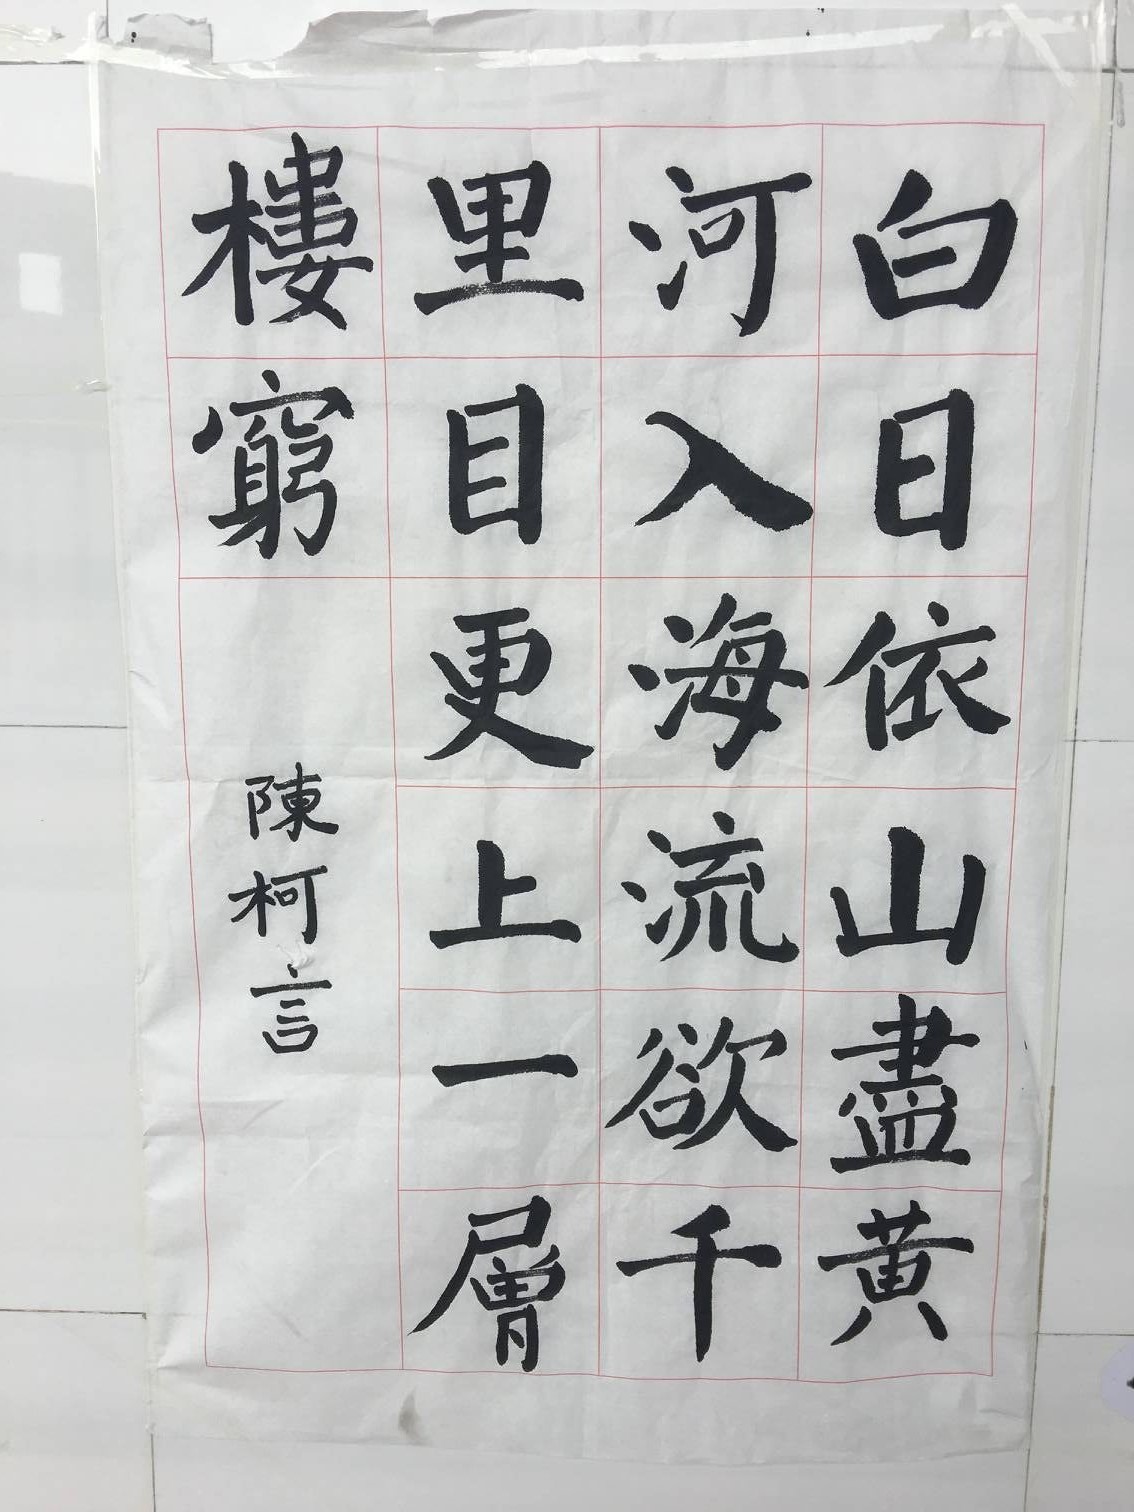 白日依山盡黃
河入海流欲千
里目更上一層
樓窮
陳柯言